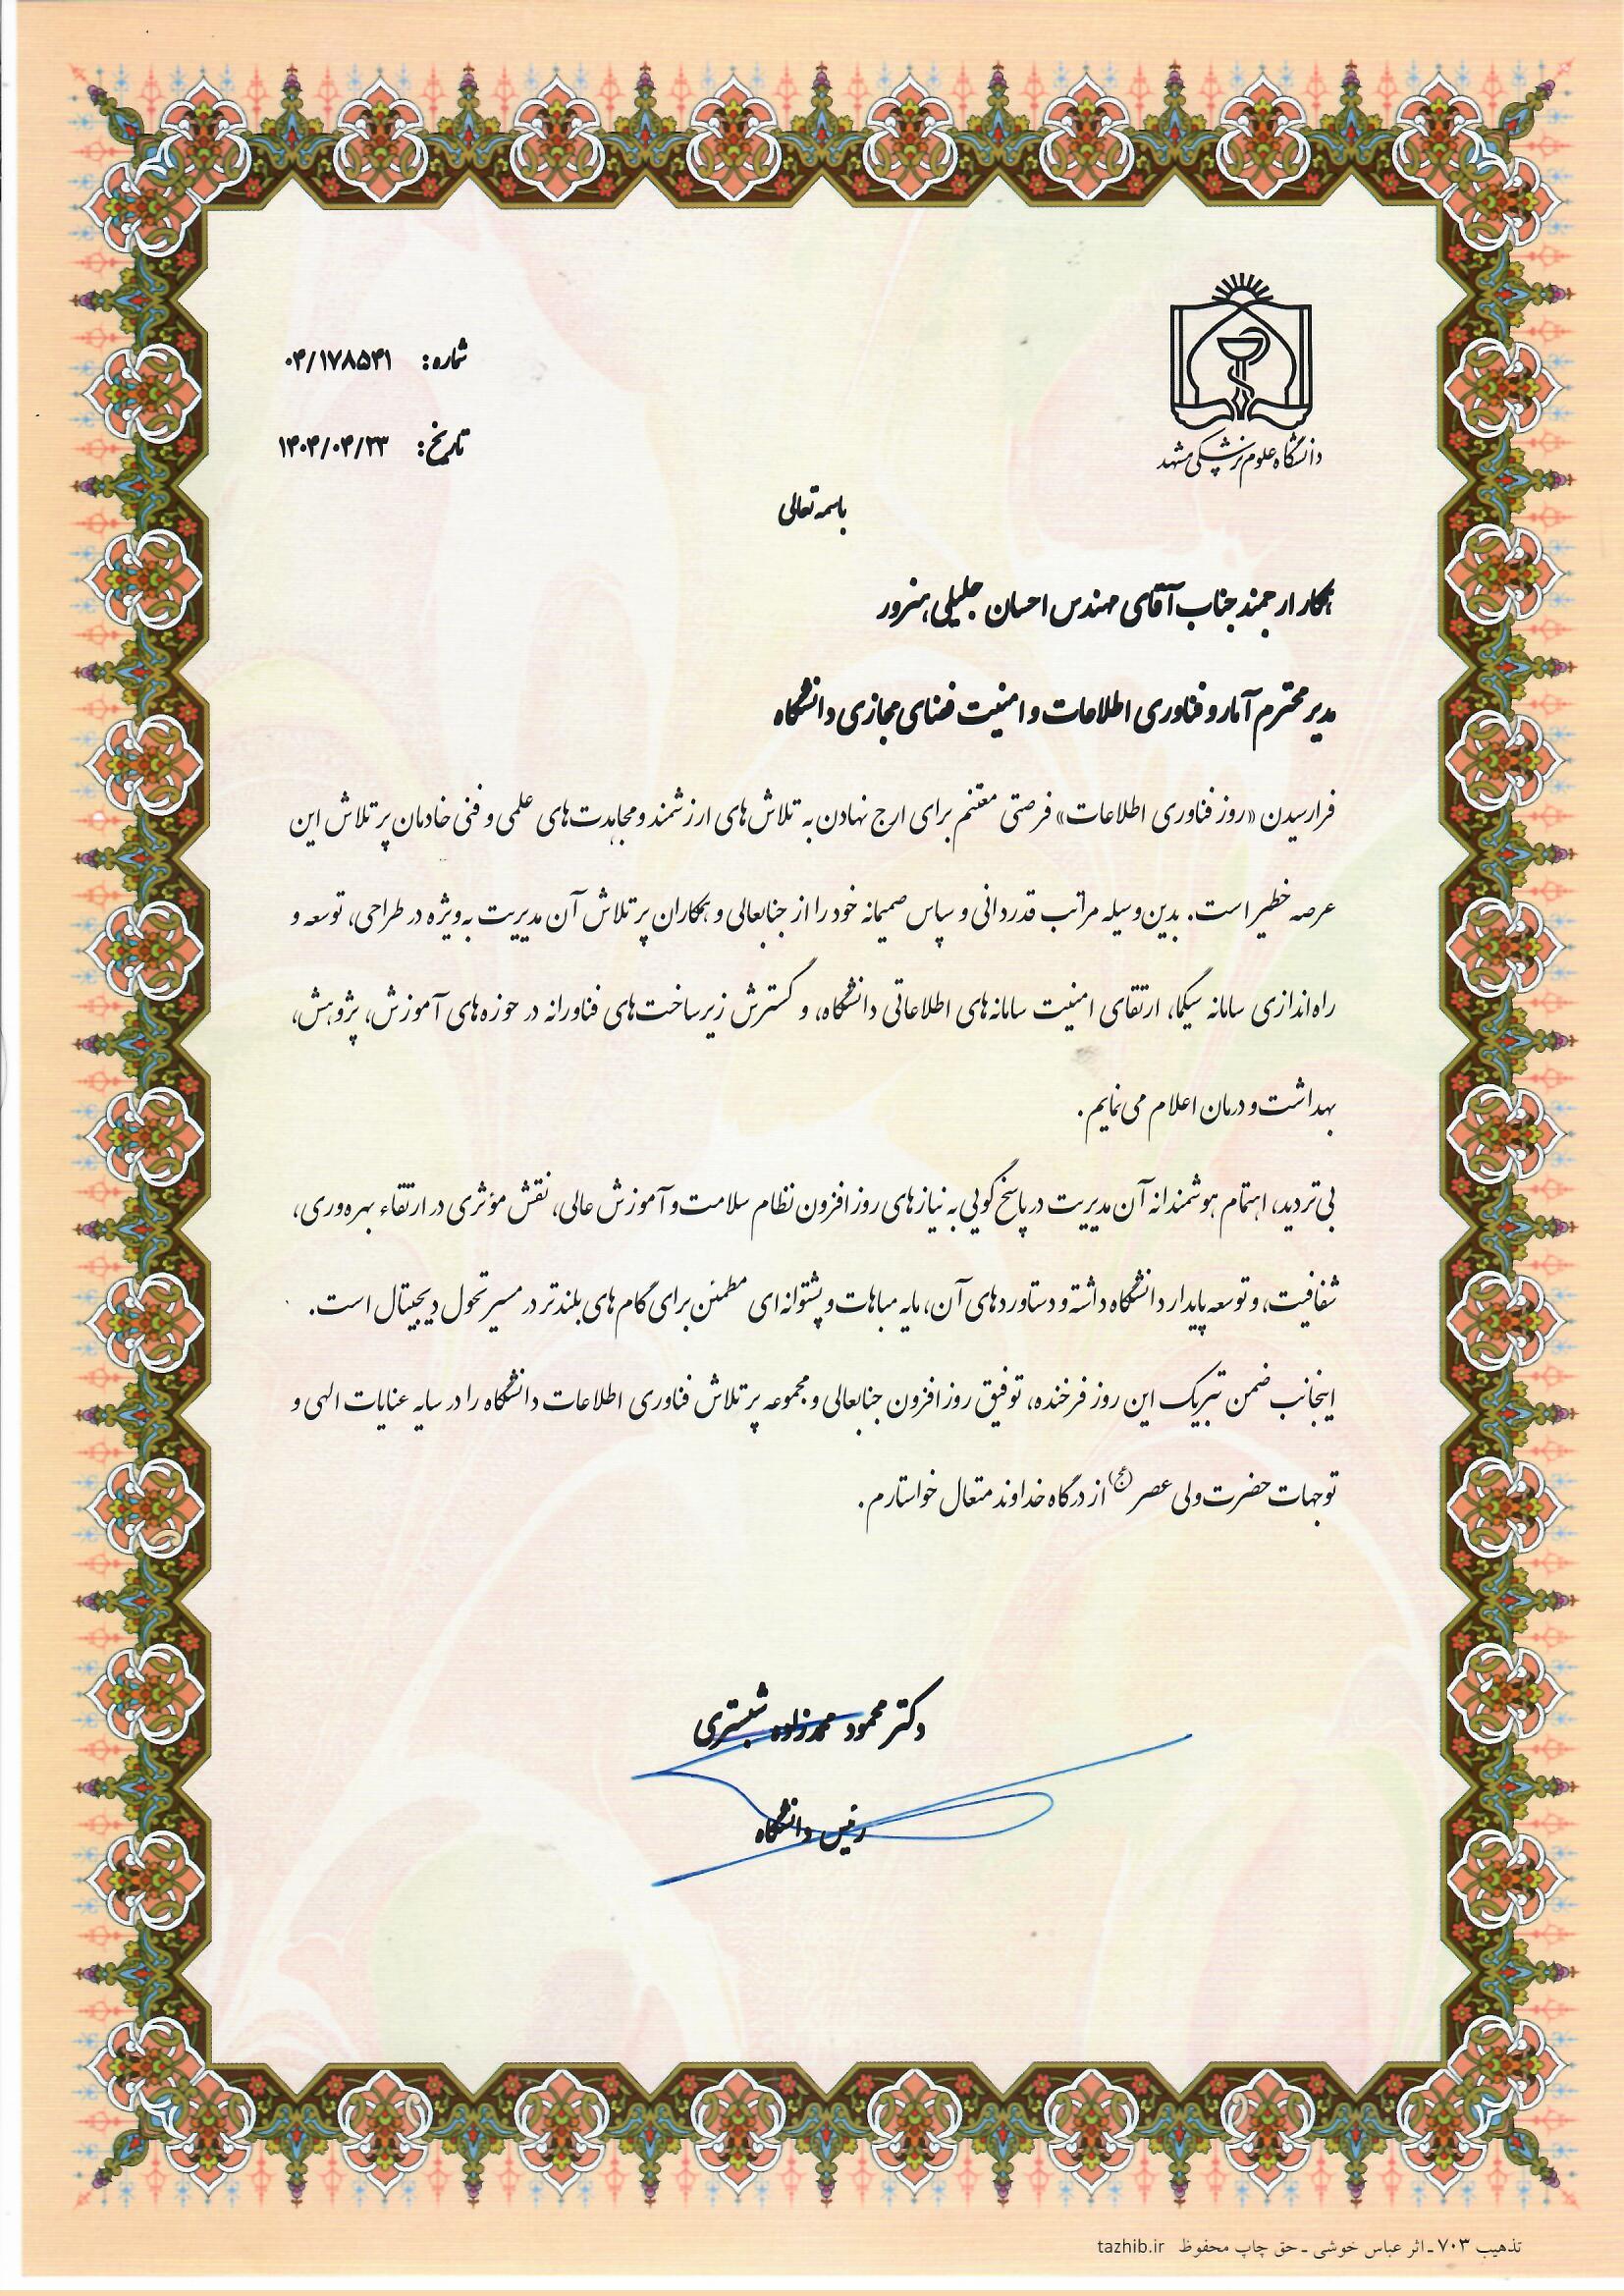 دانشگاه علوم پزشکی مشهد
شماره: ۰۴/۱۷۸۵۴۱
تاریخ: ۱۴۰۴/۰۴/۲۳
باسمه تعالی
همکار ارجمند جناب آقای مهندس احسان جلیلی هنرور
مدیر محترم آمار و فناوری اطلاعات و امنیت فضای مجازی دانشگاه
فرارسیدن «روز فناوری اطلاعات» فرصتی مغتنم برای ارج نهادن به تلاش‌های ارزشمند و مجاهدت‌های علمی و فنی خادمان پر تلاش این
عرصه خطیر است. بدین‌وسیله مراتب قدردانی و سپاس صمیمانه خود را از جنابعالی و همکاران پر تلاش آن مدیریت به‌ویژه در طراحی، توسعه و
راه‌اندازی سامانه سیگما، ارتقای امنیت سامانه‌های اطلاعاتی دانشگاه، و گسترش زیرساخت‌های فناورانه در حوزه‌های آموزش، پژوهش،
بهداشت و درمان اعلام می‌نمایم.
بی‌تردید، اهتمام هوشمندانه آن مدیریت در پاسخ‌گویی به نیازهای روزافزون نظام سلامت و آموزش عالی، نقش مؤثری در ارتقاء بهره‌وری،
شفافیت، و توسعه پایدار دانشگاه داشته و دستاوردهای آن، مایه مباهات و پشتوانه‌ای مطمئن برای گام‌های بلندتر در مسیر تحول دیجیتال است.
اینجانب ضمن تبریک این روز فرخنده، توفیق روزافزون جنابعالی و مجموعه پر تلاش فناوری اطلاعات دانشگاه را در سایه عنایات الهی و
توجهات حضرت ولی عصر (عج) از درگاه خداوند متعال خواستارم.
دکتر محمود محمدزاده شبستری
رئیس دانشگاه
تذهیب ۷۰۳ ـ اثر عباس خوشی ـ حق چاپ محفوظ tazhib.ir